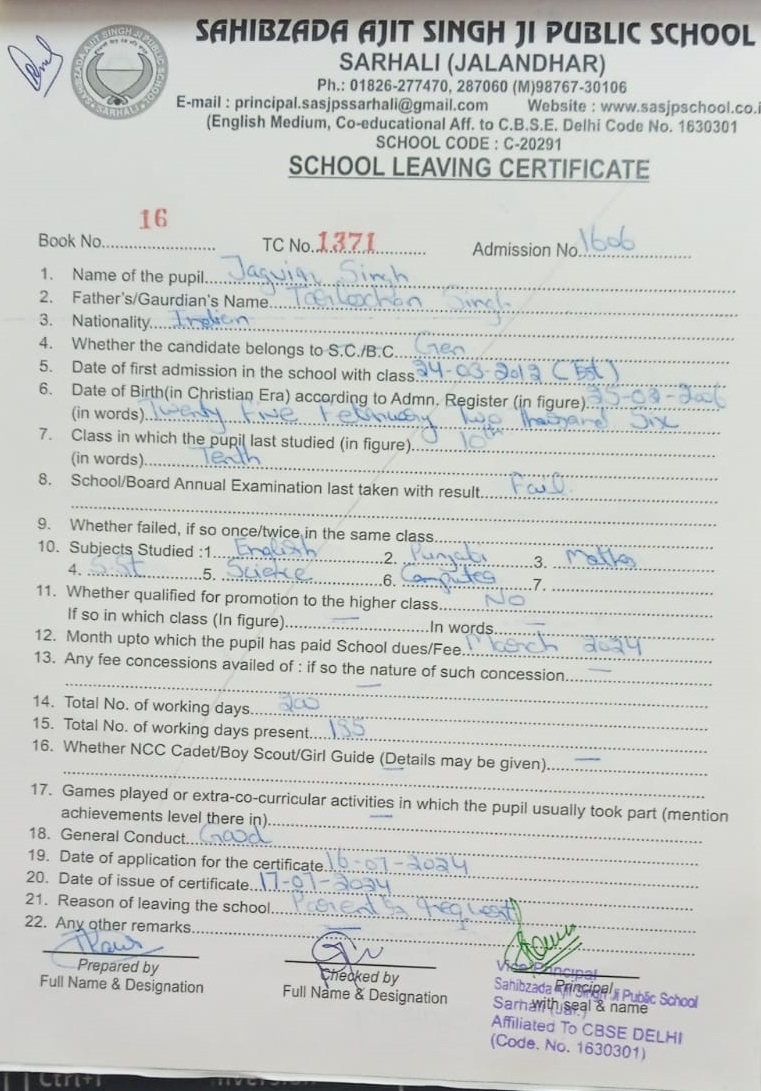 SAHIBZADA AJIT SINGH JI PUBLIC SCHOOL
SARHALI (JALANDHAR)
Ph.: 01826-277470, 287060 (M)98767-30106
E-mail : principal.sasjpssarhali@gmail.com Website : www.sasjpschool.co.i
(English Medium, Co-educational Aff. to C.B.S.E. Delhi Code No. 1630301
SCHOOL CODE : C-20291
SCHOOL LEAVING CERTIFICATE
Book No. 16 TC No. 1371 Admission No. 1606
1. Name of the pupil Singh
2. Father's/Gaurdian's Name Singh
3. Nationality Indian
4. Whether the candidate belongs to S.C./B.C. Gen
5. Date of first admission in the school with class
6. Date of Birth(in Christian Era) according to Admn. Register (in figure)
(in words) Twenty Five February Two Thousand Six
7. Class in which the pupil last studied (in figure) 10th
(in words) Tenth
8. School/Board Annual Examination last taken with result Fail
9. Whether failed, if so once/twice in the same class
10. Subjects Studied :1. English 2. Punjabi 3. Maths
4. S.St 5. Science 6. Computer 7.
11. Whether qualified for promotion to the higher class NO
If so in which class (In figure) — In words —
12. Month upto which the pupil has paid School dues/Fee March 2024
13. Any fee concessions availed of : if so the nature of such concession —
—
14. Total No. of working days 200
15. Total No. of working days present 185
16. Whether NCC Cadet/Boy Scout/Girl Guide (Details may be given) —
—
17. Games played or extra-co-curricular activities in which the pupil usually took part (mention
achievements level there in) —
18. General Conduct Good
19. Date of application for the certificate 16-07-2024
20. Date of issue of certificate 17-07-2024
21. Reason of leaving the school Parent's request
22. Any other remarks —
Prepared by
Full Name & Designation
Checked by
Full Name & Designation
Principal
with seal & name
Vice Principal
Sahibzada Ajit Singh Ji Public School
Sarhali (Jal.)
Affiliated To CBSE DELHI
(Code. No. 1630301)
Ctrl+I